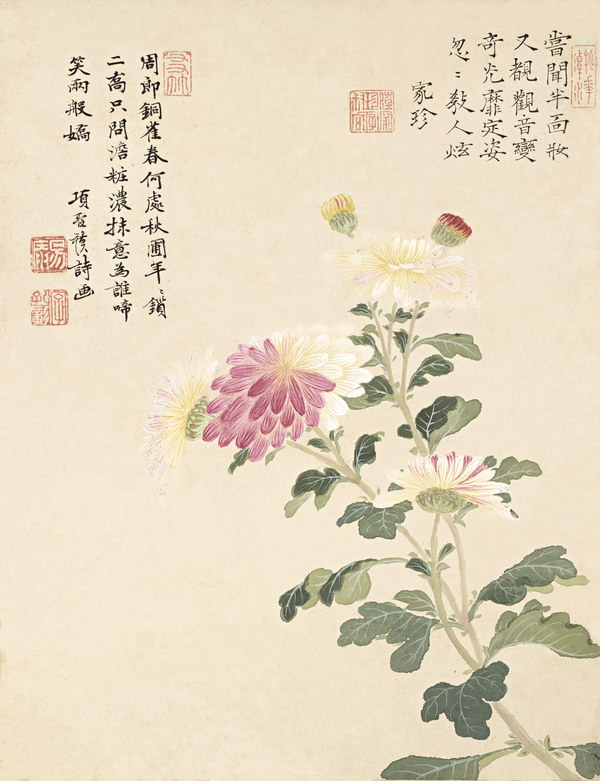 嘗聞半面妝
又覩觀音變
奇光靡定姿
忽〻殺人炫
家珍
周郎銅雀春何處秋圃年〻鎖
二喬只問澹粧濃抹意為誰啼
笑兩般嬌 項聖謨詩画